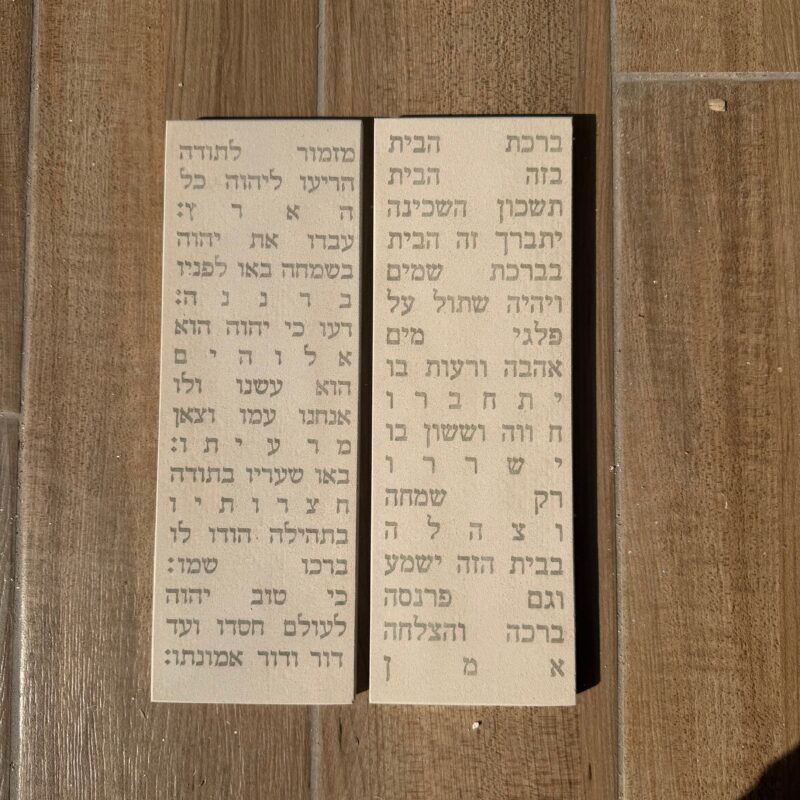 ברכת הבית
בזה הבית
תשכון השכינה
יתברך זה הבית
בברכת שמים
ויהיה שתול על
פלגי מים
אהבה ורעות בו
יתחברו
חווה וששון בו
ישררו
רק שמחה
וצהלה
בבית הזה ישמע
וגם פרנסה
ברכה והצלחה
אמן
מזמור לתודה
הריעו ליהוה כל
הארץ:
עבדו את יהוה
בשמחה באו לפניו
ברננה:
דעו כי יהוה הוא
אלוהים
הוא עשנו ולו
אנחנו עמו וצאן
מרעיתו:
באו שעריו בתודה
חצרותיו
בתהילה הודו לו
ברכו שמו:
כי טוב יהוה
לעולם חסדו ועד
דור ודור אמונתו: